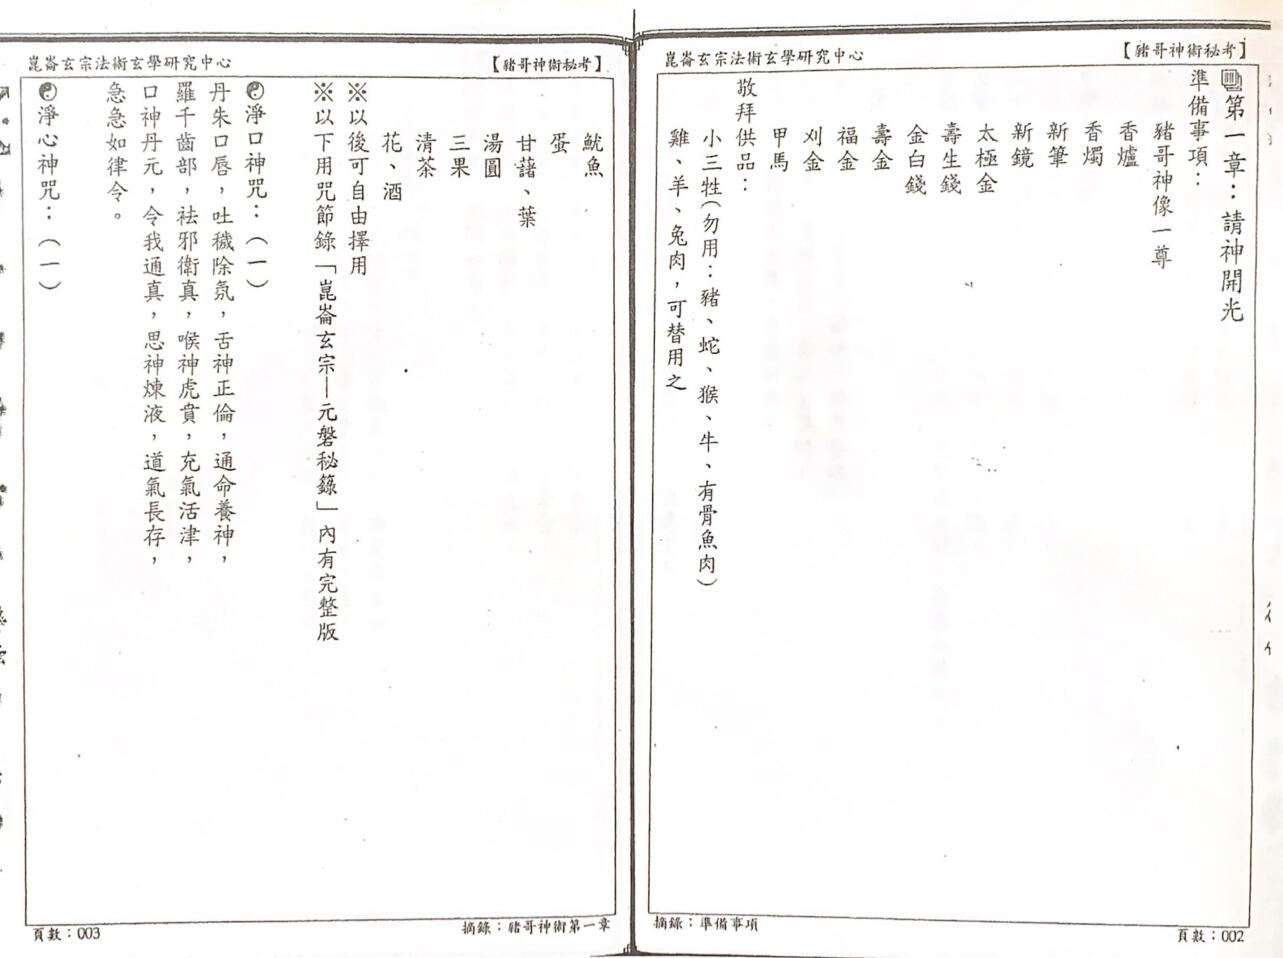 崑崙玄宗法術玄學研究中心
【豬哥神術秘考】
第一章：請神開光
準備事項：
豬哥神像一尊
香爐
香燭
新筆
新鏡
太極金
壽生錢
金白錢
壽金
福金
刈金
甲馬
敬拜供品：
小三牲（勿用：豬、蛇、猴、牛、有骨魚肉）
雞、羊、兔肉，可替用之
摘錄：準備事項
頁數：002
崑崙玄宗法術玄學研究中心
【豬哥神術秘考】
魷魚
蛋
甘藷、葉
湯圓
三果
清茶
花、酒
※以後可自由擇用
※以下用咒節錄「崑崙玄宗—元磐秘籙」內有完整版
淨口神咒：（一）
丹朱口唇，吐穢除氛，舌神正倫，通命養神，
羅千齒部，祛邪衛真，喉神虎賁，充氣活津，
口神丹元，令我通真，思神煉液，道氣長存，
急急如律令。
淨心神咒：（一）
摘錄：豬哥神術第一章
頁數：003